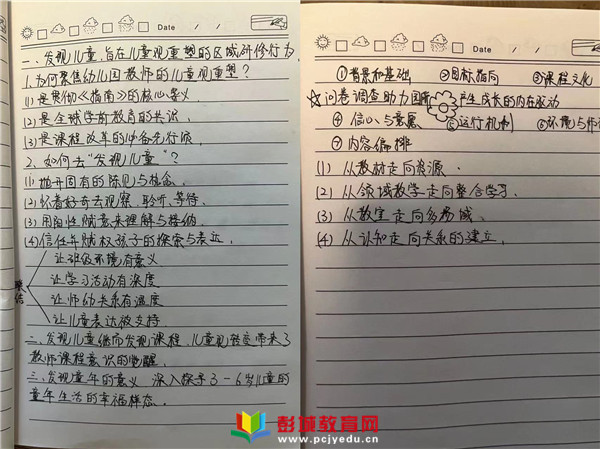 Date / /
一、发现儿童,旨在儿童观重塑的区域研修行为
1.为何聚焦幼儿园教师的儿童观重塑?
(1)是贯彻《指南》的核心要义
(2)是全球学前教育的共识.
(3)是课程改革的必备先行领.
2.如何去“发现儿童”?
(1)抛开固有的陈见与检念.
(2)怀着好奇去观察、聆听、等待.
(3)用阳性赋意来理解与接纳.
(4)信任并赋权孩子的探索与表达.
联结
让班级环境有意义
让学习活动有深度
让师幼关系有温度
让儿童表达被支持
二、发现儿童继而发现课程,儿童观转变带来了
教师课程意识的觉醒.
三、发现童年的意义 深入探寻3-6岁儿童的
童年生活的幸福样态.
Date / /
①背景和基础 ②目标指向 ③课程文化
☆问卷调查助力国 产生成长的内在驱动
④信心与意愿 ⑤运行机制 ⑥环境与
⑦内容偏排
(1)从教材走向资源.
(2)从领域教学走向整合学习.
(3)从教室走向多场域.
(4)从认知走向关系的建立.
彭城教育网
www.pcjyedu.cn